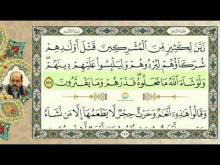 زَيَّنَ لِكَثِيرٍ مِّنَ ٱلْمُشْرِكِينَ قَتْلَ أَوْلَٰدِهِمْ
شُرَكَآؤُهُمْ لِيُرْدُوهُمْ وَلِيَلْبِسُوا۟ عَلَيْهِمْ دِينَهُمْ
وَلَوْ شَآءَ ٱللَّهُ مَا فَعَلُوهُ فَذَرْهُمْ وَمَا يَفْتَرُونَ ١٣٧
وَقَالُوا۟ هَٰذِهِۦٓ أَنْعَٰمٌ وَحَرْثٌ حِجْرٌ لَّا يَطْعَمُهَآ إِلَّا مَن نَّشَآءُ